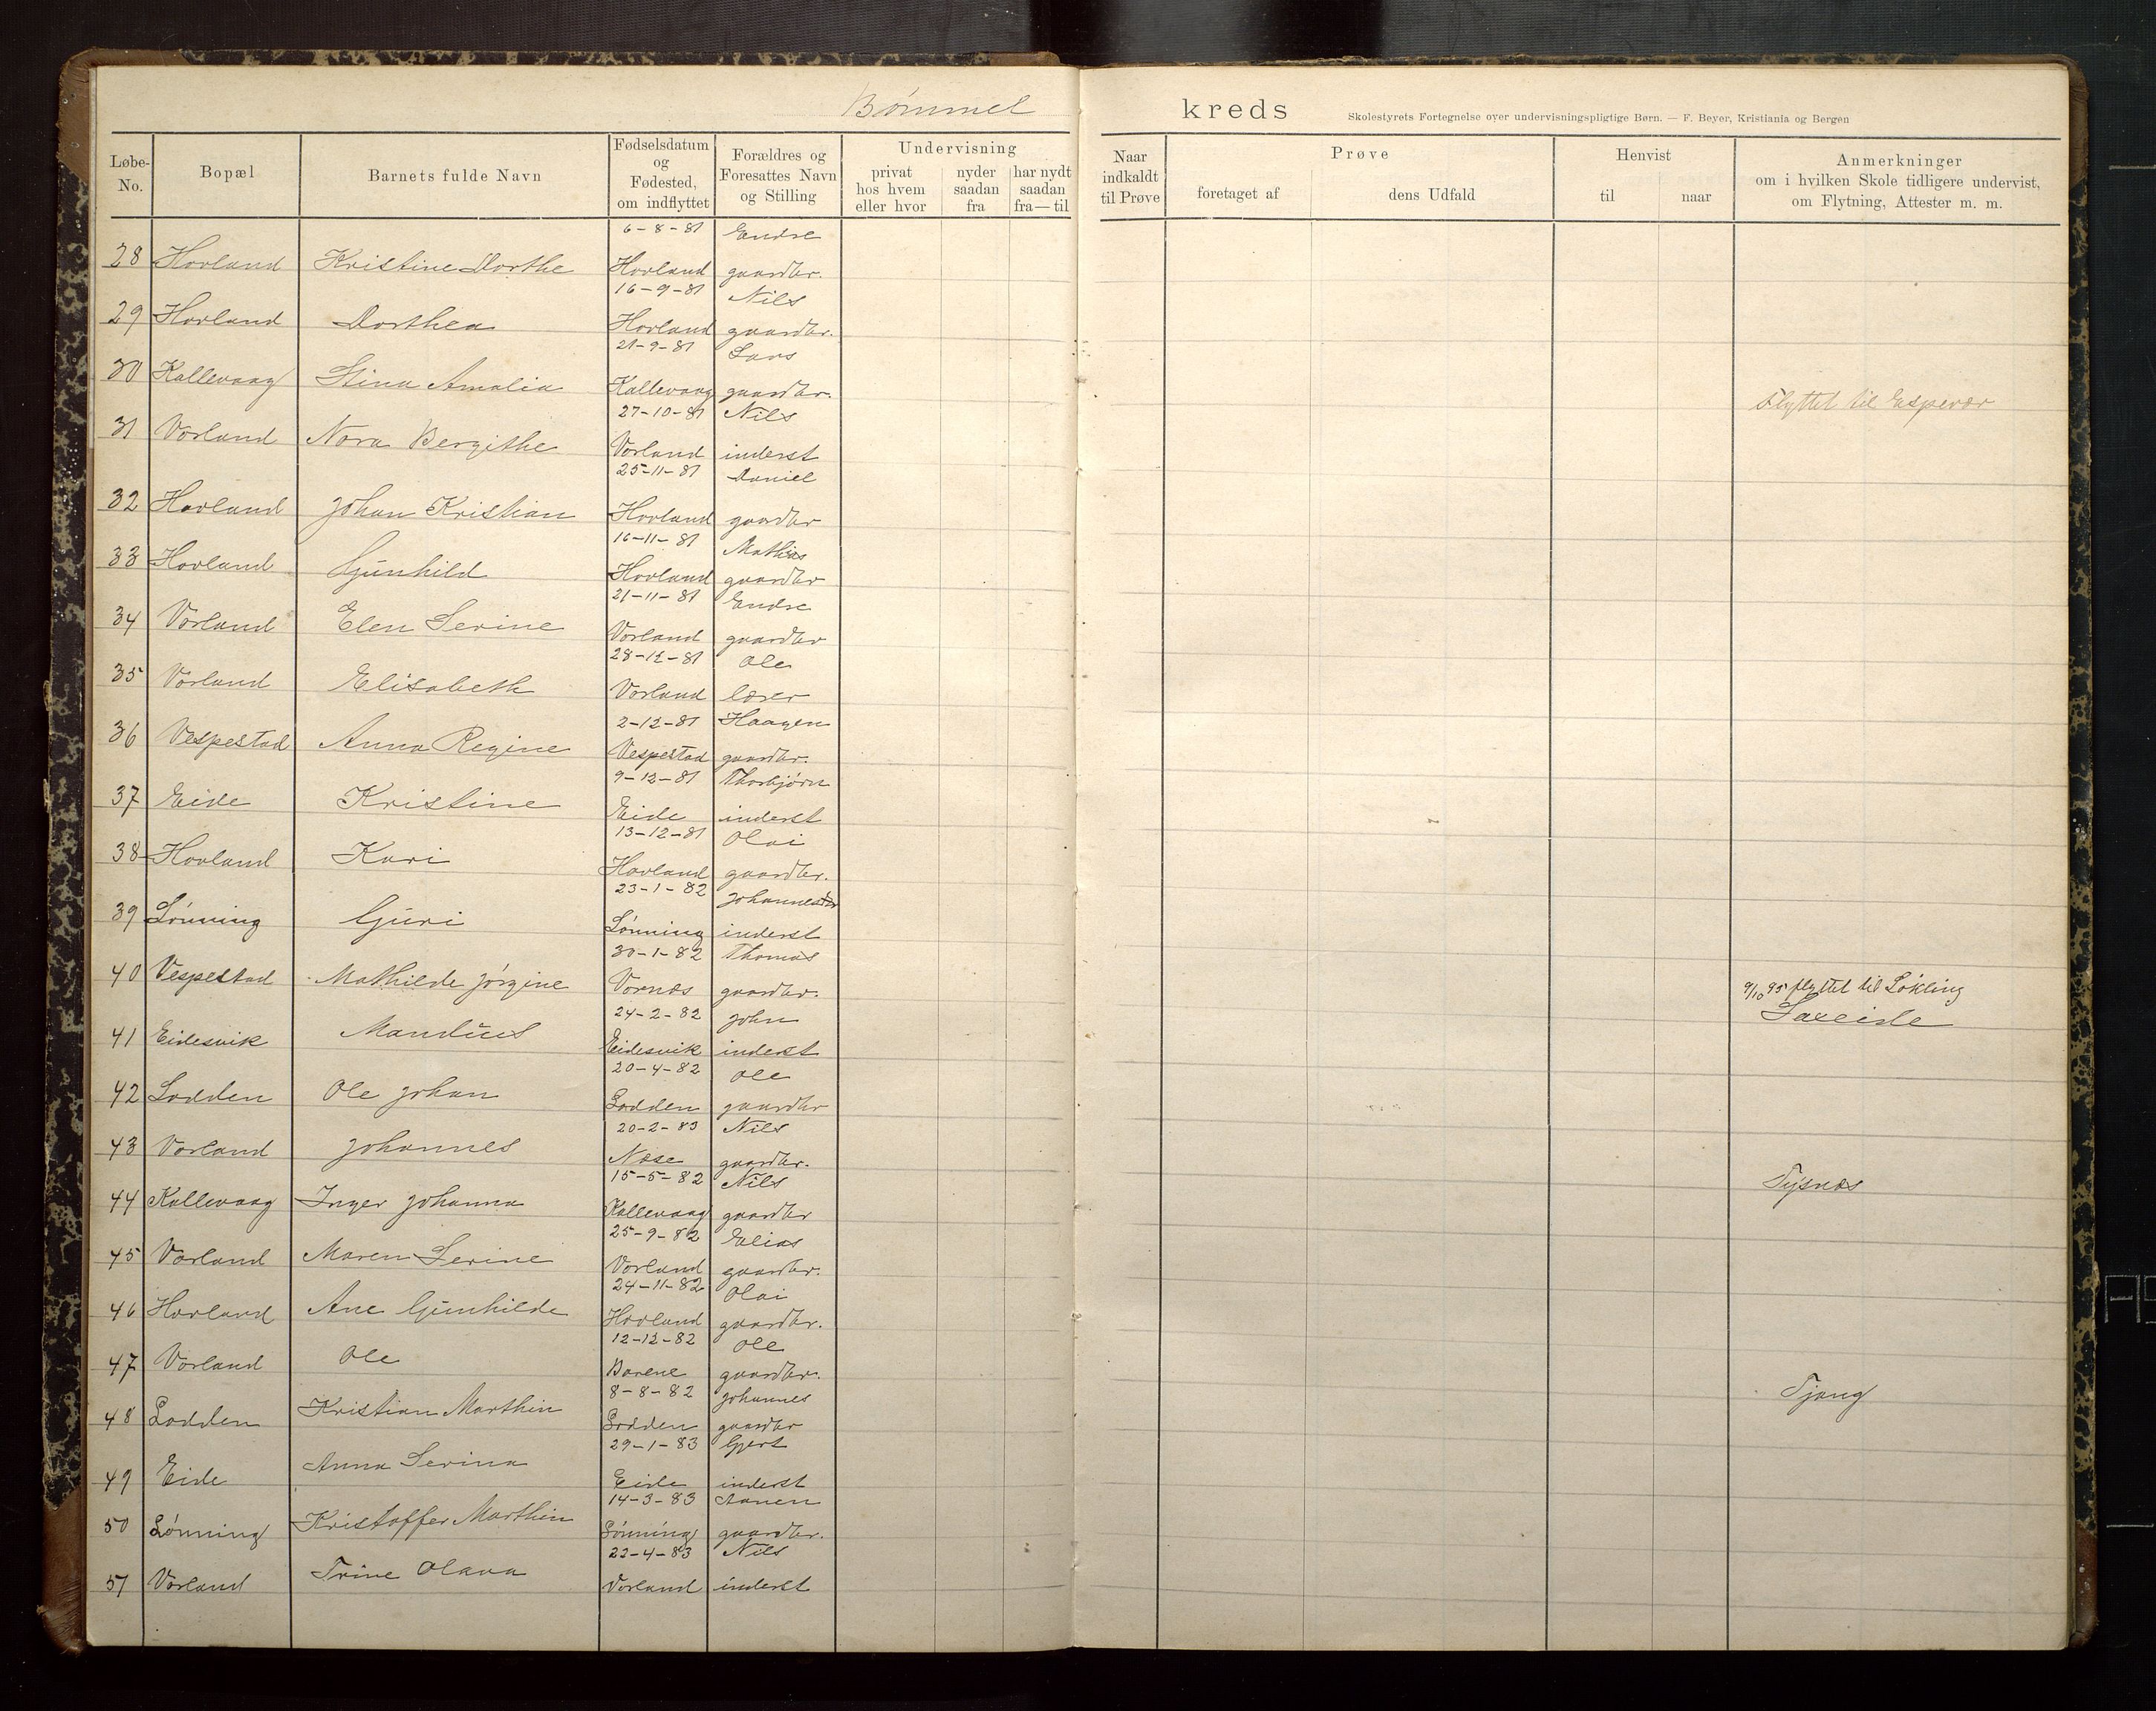 Bømmel kreds
Skolestyrets Fortegnelse over undervisningspligtige Børn. — F. Beyer, Kristiania og Bergen
Løbe-No. Bopæl Barnets fulde Navn Fødselsdatum og Fødested, om indflyttet Forældres og Foresattes Navn og Stilling Undervisning privat hos hvem eller hvor nyder saadan fra har nydt saadan fra—til Naar indkaldt til Prøve Prøve foretaget af dens Udfald Henvist til naar Anmerkninger om i hvilken Skole tidligere undervist, om Flytning, Attester m. m.
6-8-81 Endre
28 Hovland Kristine Dorthe Hovland gaardbr.
16-9-81 Nils
29 Hovland Dorthea Hovland gaardbr.
21-9-81 Lars
30 Kallevaag Stina Amalia Kallevaag gaardbr.
27-10-81 Nils Flyttet til Espevær
31 Vorland Nora Bergithe Vorland inderst
25-11-81 Daniel
32 Hovland Johan Kristian Hovland gaardbr
16-11-81 Mathias
33 Hovland Gunhild Hovland gaardbr
21-11-81 Endre
34 Vorland Elen Serine Vorland gaardbr
28-12-81 Ole
35 Vorland Elisabeth Vorland lærer
2-12-81 Haagen
36 Vespestad Anna Regine Vespestad gaardbr.
9-12-81 Thorbjørn
37 Eide Kristine Eide inderst
13-12-81 Olai
38 Hovland Kari Hovland gaardbr.
23-1-82 Johannes
39 Lønning Guri Lønning inderst
30-1-82 Thomas
40 Vespestad Mathilde Jørgine Vornes gaardbr. 9/10 95 flyttet til Løkling
24-2-82 John Saxeide
41 Eidesvik Mandius Eidesvik inderst
20-4-82 Ole
42 Lodden Ole Johan Lodden gaardbr
20-2-83 Nils
43 Vorland Johannes Næse gaardbr.
15-5-82 Nils Tysnæs
44 Kallevaag Inger Johanna Kallevaag gaardbr
25-9-82 Elias
45 Vorland Maren Serine Vorland gaardbr.
24-11-82 Olai
46 Hovland Ane Gunhilde Hovland gaardbr.
12-12-82 Ole
47 Vorland Ole Barene gaardbr.
8-8-82 Johannes Tjong
48 Lodden Kristian Marthin Lodden gaardbr
29-1-83 Gjert
49 Eide Anna Serina Eide inderst
14-3-83 Aanen
50 Lønning Kristoffer Marthin Lønning gaardbr.
22-4-83 Nils
51 Vorland Trine Olava Vorland inderst